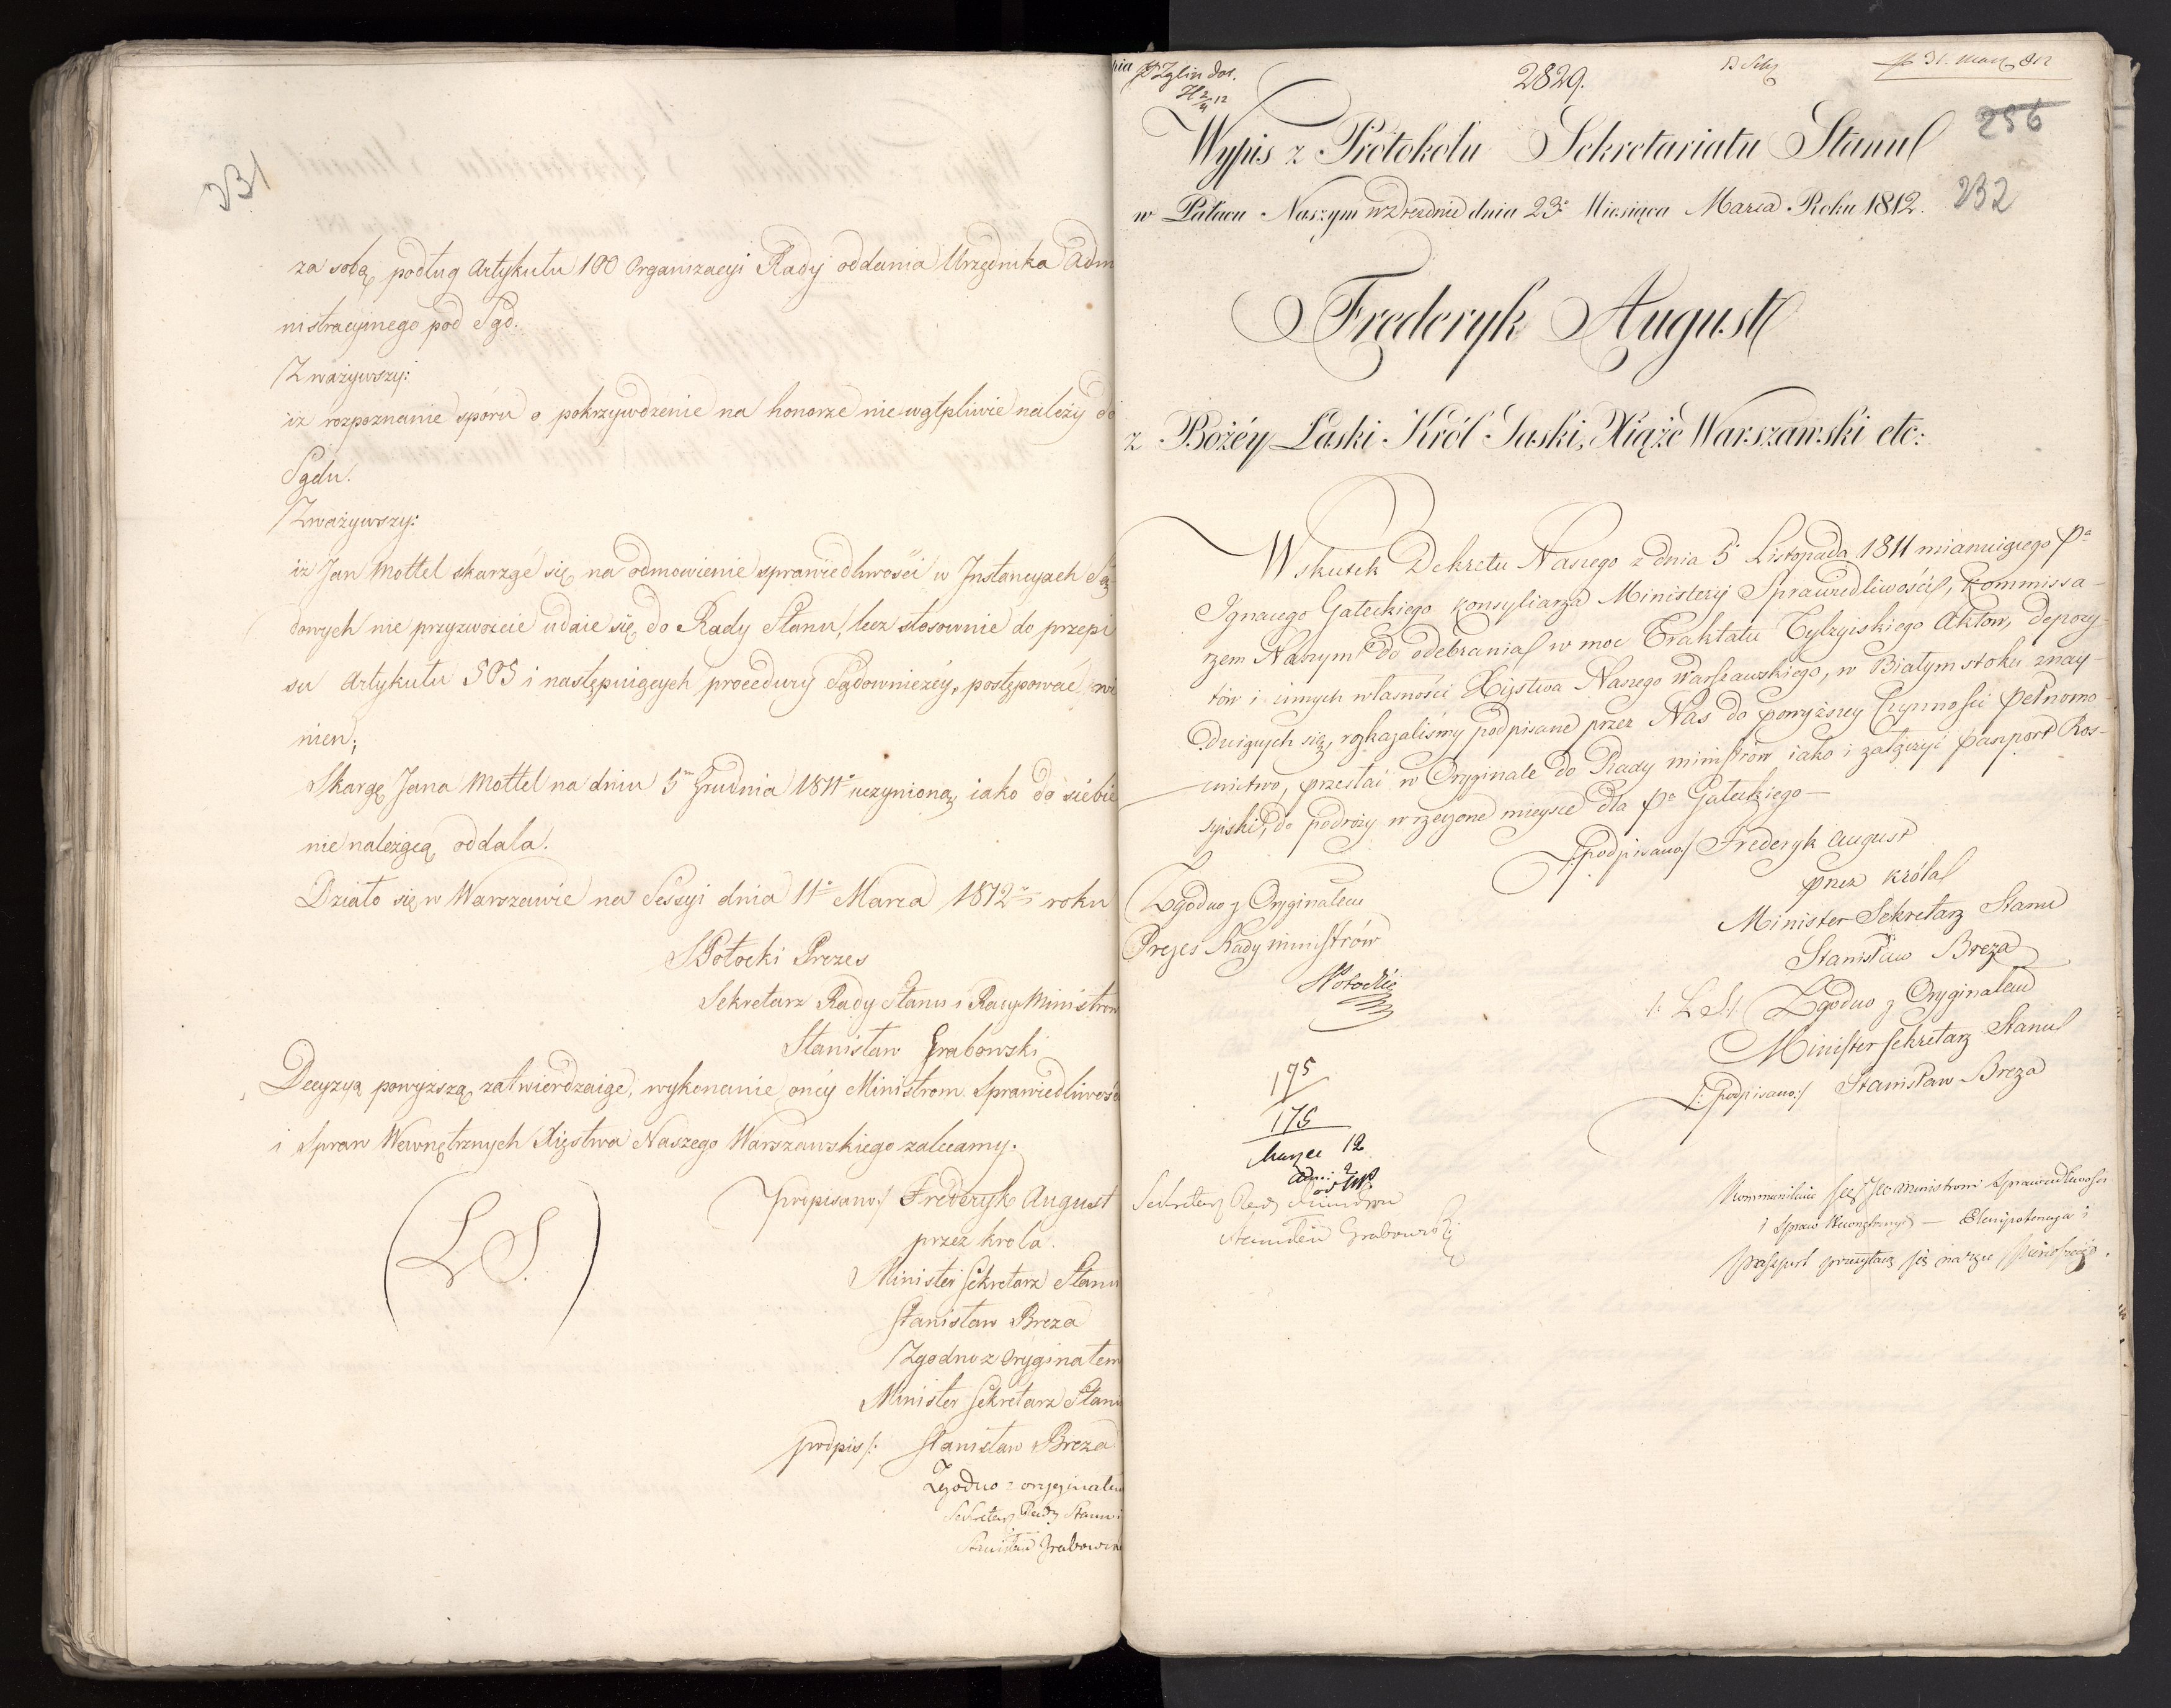 231
za sobą podług Artykułu 100 Organizacyi Rady oddania Urzędnika Adm
nistracyinego pod Sąd.
Zważywszy:
iż rozpoznanie sporu o pokrzywdzenie na honorze niewątpliwie należy do
Sądu.
Zważywszy:
iż Jan Mottel skarżąc się na odmowienie sprawiedliwości w Instancyach Są
dowych nie przyzwoicie udaie się do Rady Stanu, lecz stosownie do przepi
su Artykułu 505 i następuiących procedury Sądowniczéy, postępować wi
nien;
Skargę Jana Mottel na dniu 5m Grudnia 1811o uczynioną iako do siebie
nie należącą oddala.
Działo się w Warszawie na Sessyi dnia 11o Marca 1812o roku
S Potocki Prezes
Sekretarz Rady Stanu i Rady Ministrow
Stanisław Grabowski
Decyzyą powyższą zatwierdzaiąc, wykonanie onéy Ministrom Sprawiedliwośc
i Spraw Wewnętrznych Xięstwa Naszego Warszawskiego zalecamy.
podpisano:/ Frederyk August
przez krola.
(L.S.)
Minister Sekretarz Stanu
Stanisław Breza
Zgodno z Oryginałem
Minister Sekretarz Stanu
podpis/: Stanisław Breza
Zgodno z oryginałem
Sekretarz Rady Stanu
Stanisław Grabowski
2829.
31. 812
256
Wypis z Protokołu Sekretariatu Stanu
232
w Pałacu Naszym w Dreźnie dnia 23o Miesiąca Marca Roku 1812.
Frederyk August
z Bożéy Łaski Król Saski, Xiążę Warszawski etc:
Wskutek Dekretu Naszego z dnia 5o Listopada 1811 mianuiącego Pa
Ignacego Gałeckiego Konsyliarza Ministeryi Sprawiedliwości, Kommissa-
rzem Naszym do odebrania w moc Traktatu Tylzyiskiego Aktow, depozy-
tów i innych własności Xięstwa Naszego Warszawskiego, w Białymstoku znay-
duiących się, rozkazaliśmy podpisane przez Nas do powyższey Czynności pełnomo-
cnictwo, przesłać w Oryginale do Rady ministrów iako i załączyć Paszport Ros-
syiski, do podroży wrzeczone mieysce dla Pa Gałeckiego—
/:podpisano:/ Frederyk August
przez króla
Minister Sekretarz Stanu
Stanisław Breza
Zgodno z Oryginałem
Prezes Rady ministrów
SPotocki
/: L S:/ Zgodno z Oryginałem
Minister Sekretarz Stanu
/:podpisano:/ Stanisław Breza
175
175
Marzec 12
Sekretarz Rady Ministrow
Stanisław Grabowski
Kommunikuie się JWo Ministrom Sprawiedliwości
i Spraw Wewnętrznych — Plenipotencya i
Paszport przesyłaią się na ręce